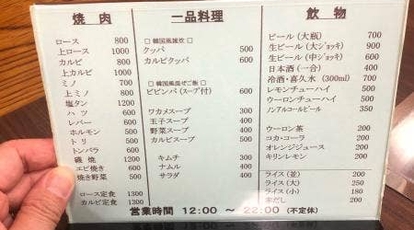 焼肉
ロース 800
上ロース 1000
カルビ 800
上カルビ 1000
ミノ 700
上ミノ 800
塩タン 1200
ハツ 600
レバー 600
ホルモン 600
トリ 500
トンバラ 600
磯焼 1200
エビ焼き 600
焼き野菜 500
ロース定食 1300
カルビ定食 1300
一品料理
韓国風雑炊
クッパ 500
カルビクッパ 600
韓国風混ぜご飯
ビビンバ(スープ付) 600
ワカメスープ 300
玉子スープ 400
野菜スープ 400
カルビスープ 500
キムチ 300
ナムル 400
サラダ 400
飲物
ビール(大瓶) 700
生ビール(大ジョッキ) 900
生ビール(中ジョッキ) 600
日本酒(一合) 400
冷酒・喜久水(300ml) 700
レモンチューハイ 400
ウーロンチューハイ 400
ノンアルコールビール 350
ウーロン茶 200
コカ・コーラ 200
オレンジジュース 200
キリンレモン 200
ライス(並) 200
ライス(大) 250
ライス(小) 180
赤だし 200
営業時間 12:00 ~ 22:00 (不定休)